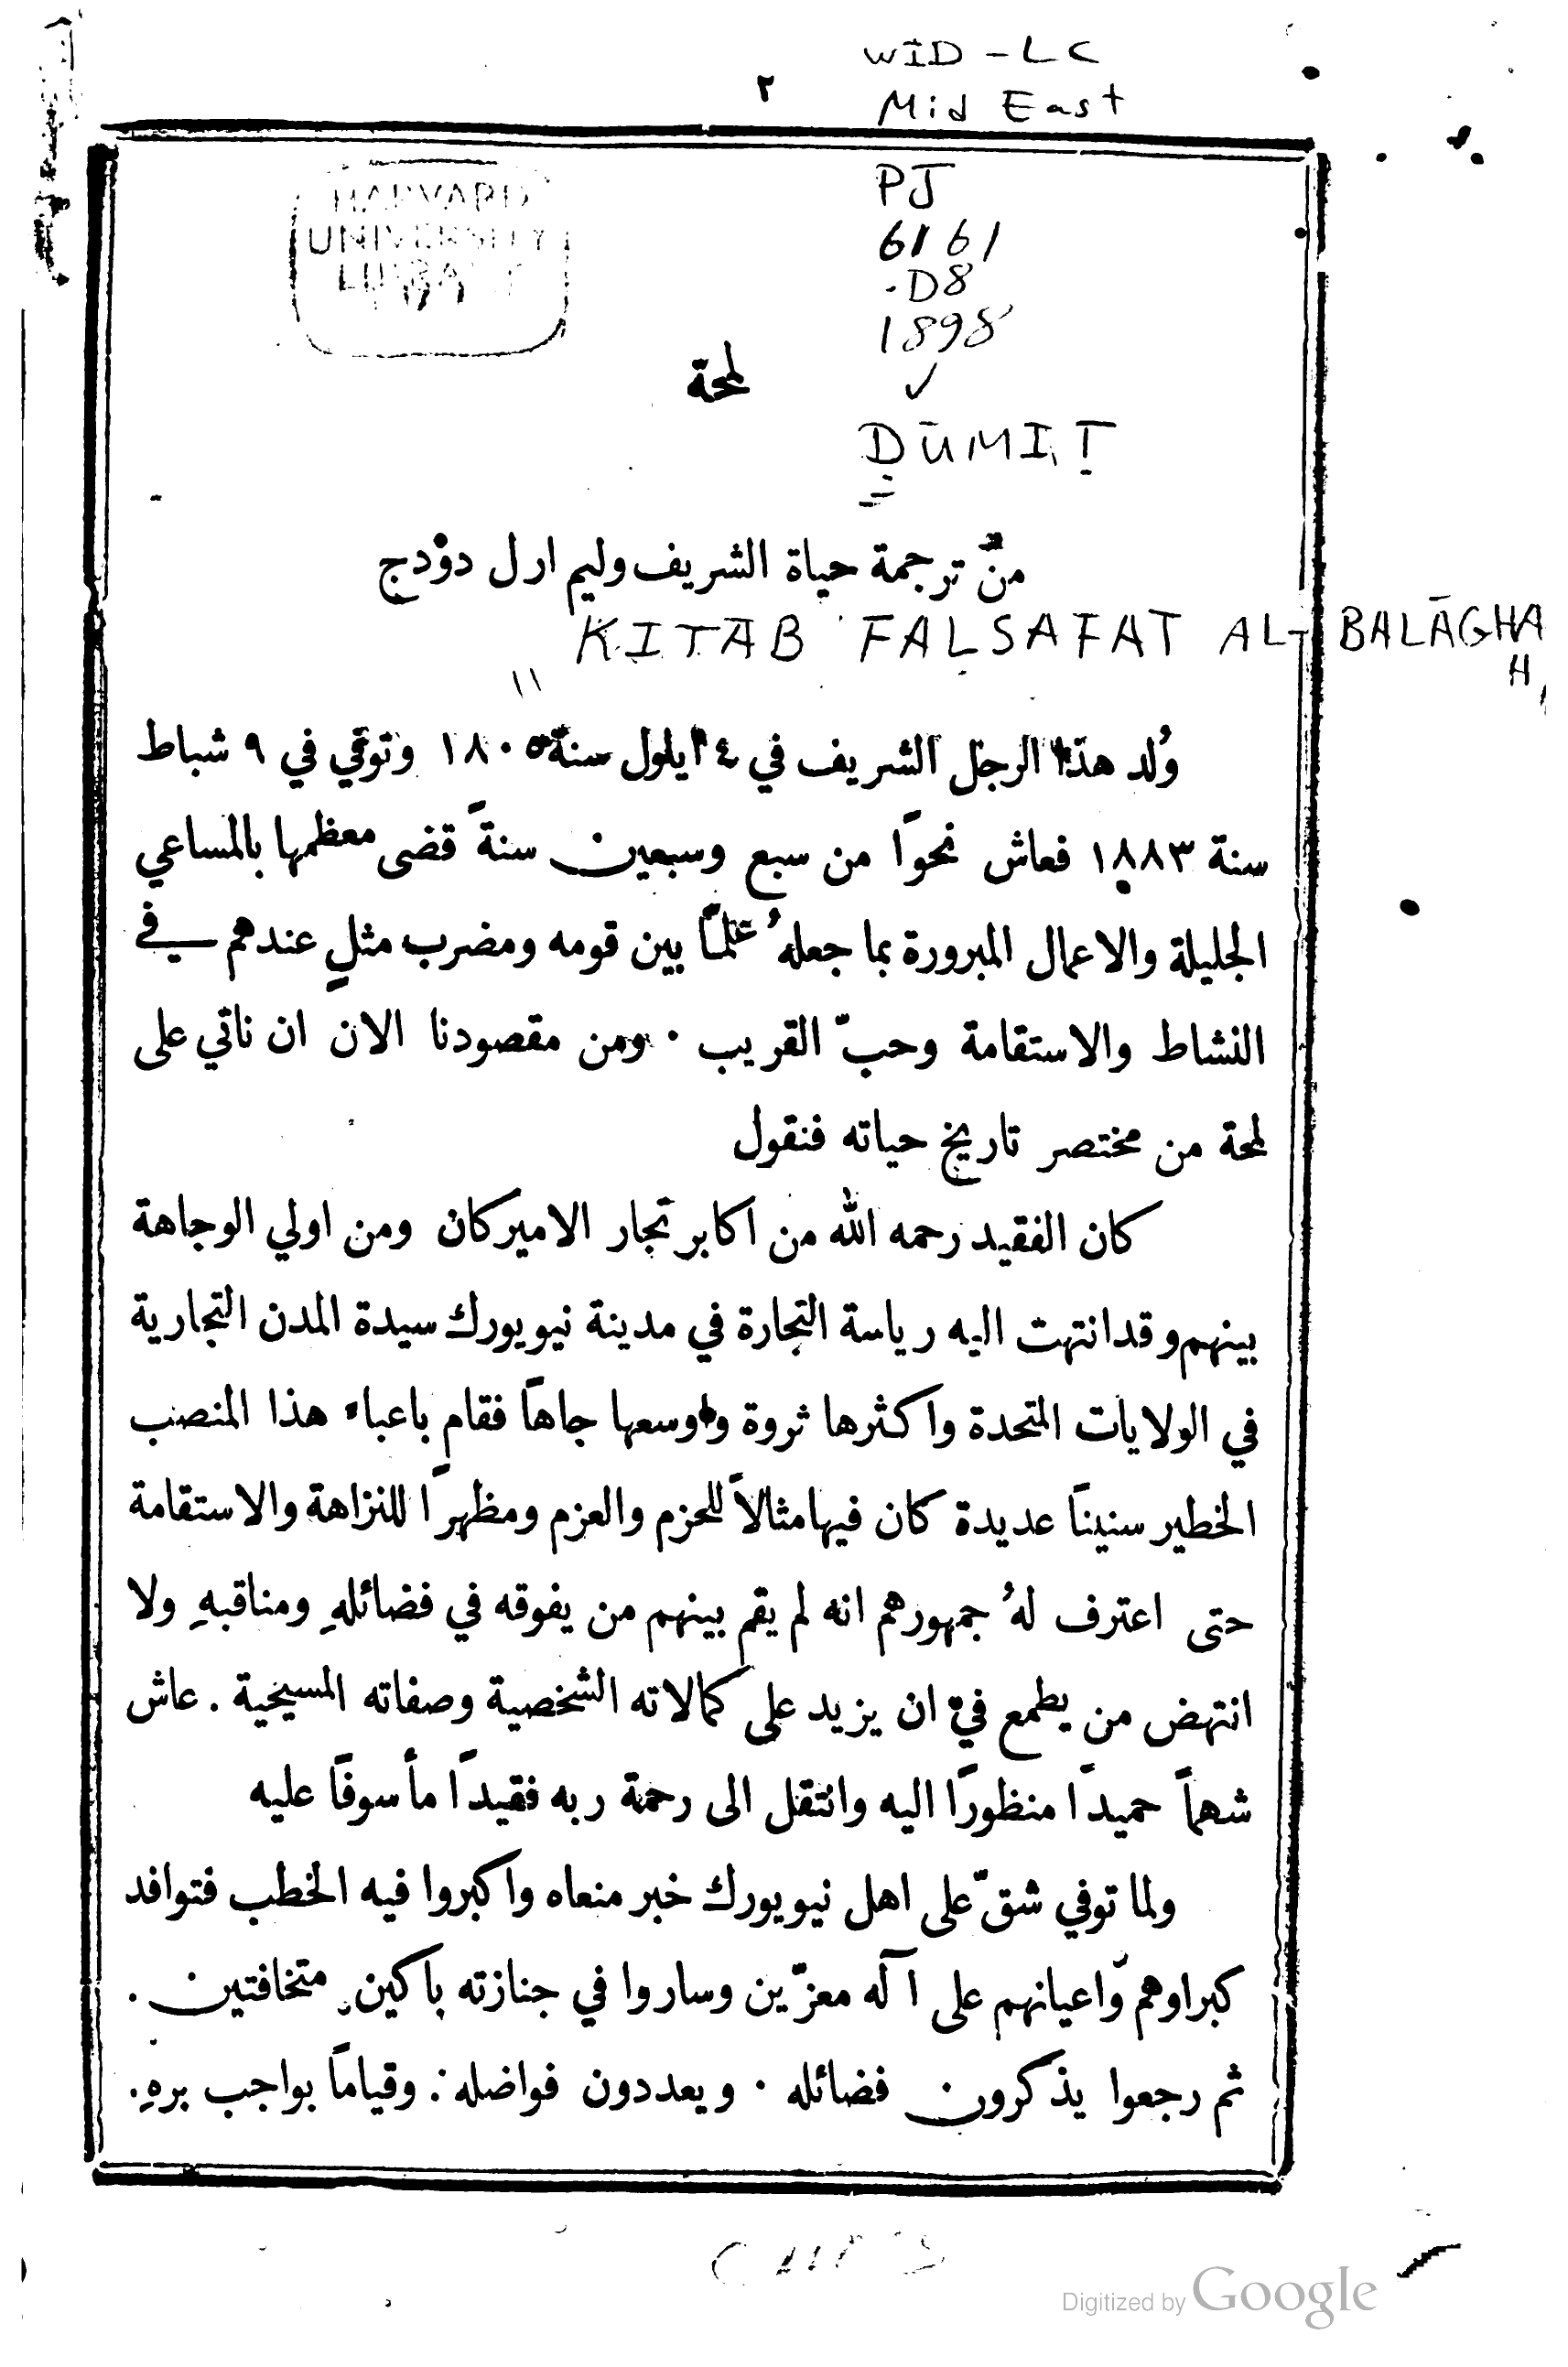 WID - LC
٢
Mid East
HARVARD
UNIVERSITY
PJ
6161
.D8
1898
لمحة
DUMIT
من ترجمة حياة الشريف وليم ارل دوْدج
KITAB FALSAFAT AL-BALĀGHA
H
وُلد هذا الرجل الشريف في ٤ ايلول سنة ١٨٠٥ وتوفي في ٩ شباط
سنة ١٨٨٣ فعاش نحوًا من سبع وسبعين سنةً قضى معظمها بالمساعي
الجليلة والاعمال المبرورة بما جعلهُ علمًا بين قومه ومضرب مثلٍ عندهم في
النشاط والاستقامة وحبّ القريب ٠ ومن مقصودنا الان ان ناتي على
لمحة من مختصر تاريخ حياته فنقول
كان الفقيد رحمه الله من اكابر تجار الاميركان ومن اولي الوجاهة
بينهم وقد انتهت اليه رياسة التجارة في مدينة نيويورك سيدة المدن التجارية
في الولايات المتحدة واكثرها ثروة واوسعها جاهًا فقام باعباء هذا المنصب
الخطير سنينًا عديدة كان فيها مثالاً للحزم والعزم ومظهرًا للنزاهة والاستقامة
حتى اعترف لهُ جمهورهم انه لم يقم بينهم من يفوقه في فضائلهِ ومناقبهِ ولا
انتهض من يطمع في ان يزيد على كمالاته الشخصية وصفاته المسيحية . عاش
شهمًا حميدًا منظورًا اليه وانتقل الى رحمة ربه فقيدًا مأسوفًا عليه
ولما توفي شقّ على اهل نيويورك خبر منعاه واكبروا فيه الخطب فتوافد
كبراوهم واعيانهم على آله معزّين وساروا في جنازته باكين متخافتين .
ثم رجعوا يذكرون فضائله ٠ ويعددون فواضله . وقيامًا بواجب برهِ .
Digitized by Google